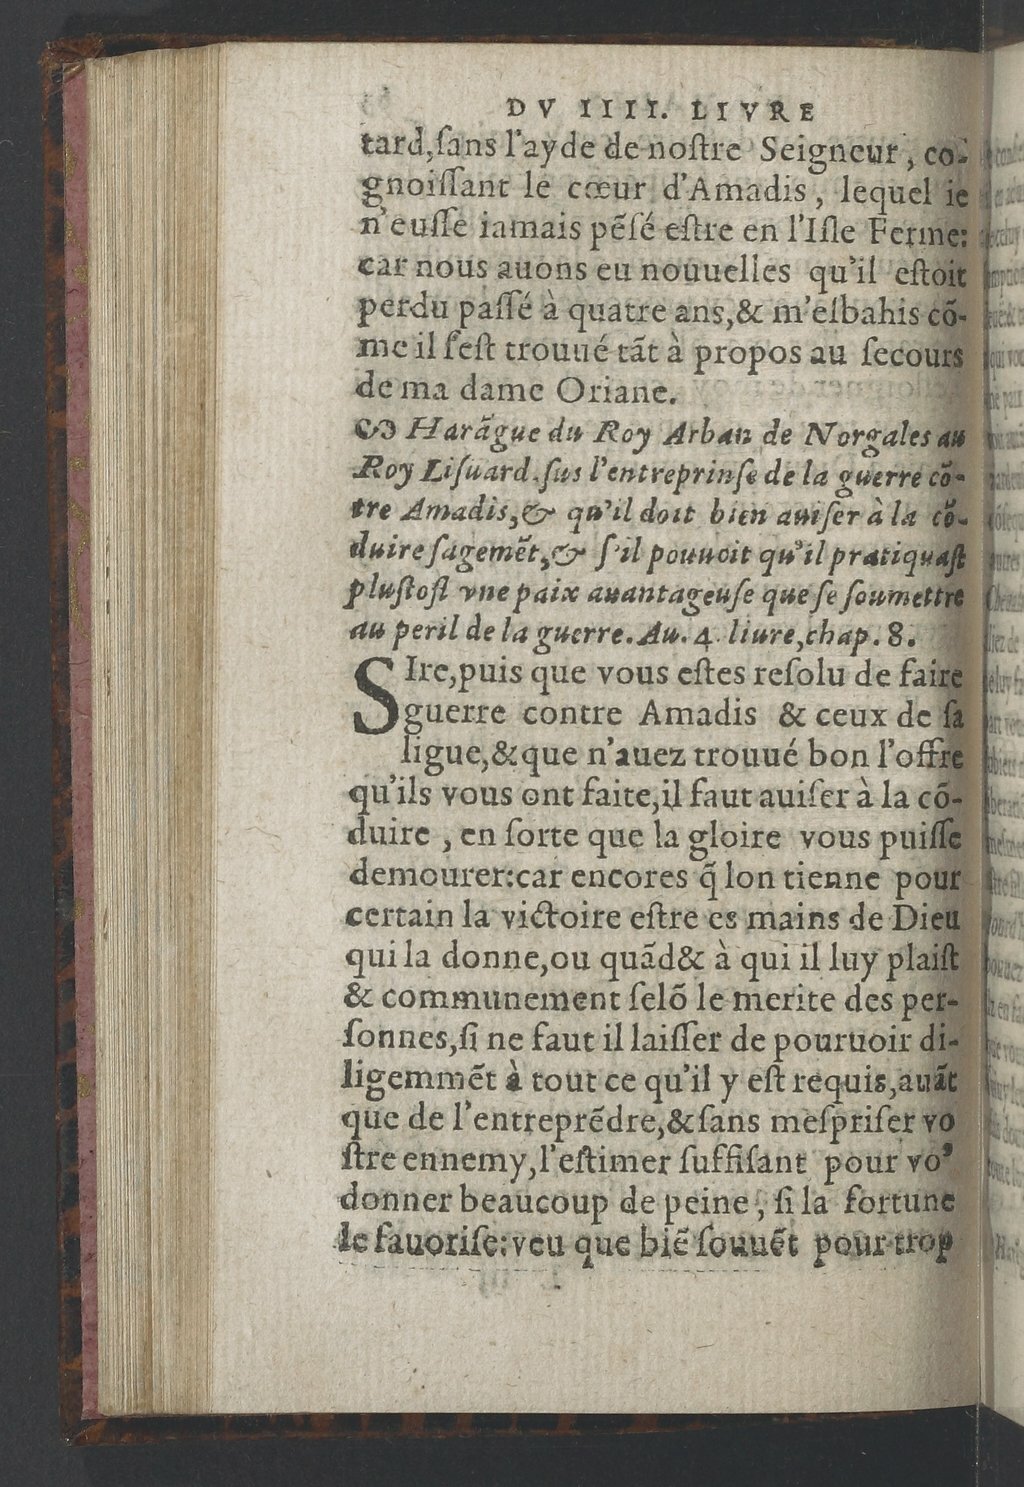 DV IIII. LIVRE
tard,ſans l'ayde de noſtre Seigneur, co-
gnoiſſant le cœur d'Amadis, lequel ie
n'euſſe iamais pẽſé eſtre en l'Iſle Ferme:
car nous auons eu nouuelles qu'il eſtoit
perdu paſſé à quatre ans,& m'eſbahis cõ-
me il ſ'eſt trouué tãt à propos au ſecours
de ma dame Oriane.
Harãgue du Roy Arban de Norgales au
Roy Liſuard.ſus l'entreprinſe de la guerre cõ-
tre Amadis,& qu'il doit bien auiſer à la cõ-
duire ſagemẽt,& ſ'il pouuoit qu'il pratiquaſt
pluſtoſt vne paix auantageuſe que ſe ſoumettre
au peril de la guerre. Au. 4. liure,chap. 8.
SIre,puis que vous eſtes reſolu de faire
guerre contre Amadis & ceux de ſa
ligue,&que n'auez trouué bon l'offre
qu'ils vous ont faite,il faut auiſer à la cõ-
duire , en ſorte que la gloire vous puiſſe
demourer:car encores q̃ lon tienne pour
certain la victoire eſtre es mains de Dieu
qui la donne,ou quãd& à qui il luy plaiſt
& communement ſelõ le merite des per-
ſonnes,ſi ne faut il laiſſer de pouruoir di-
ligemmẽt à tout ce qu'il y eſt requis,auãt
que de l'entreprẽdre,&ſans meſpriſer vo
ſtre ennemy,l'eſtimer ſuffiſant pour vo⁹
donner beaucoup de peine , ſi la fortune
le fauoriſe:veu que biẽ ſouuẽt pour trop